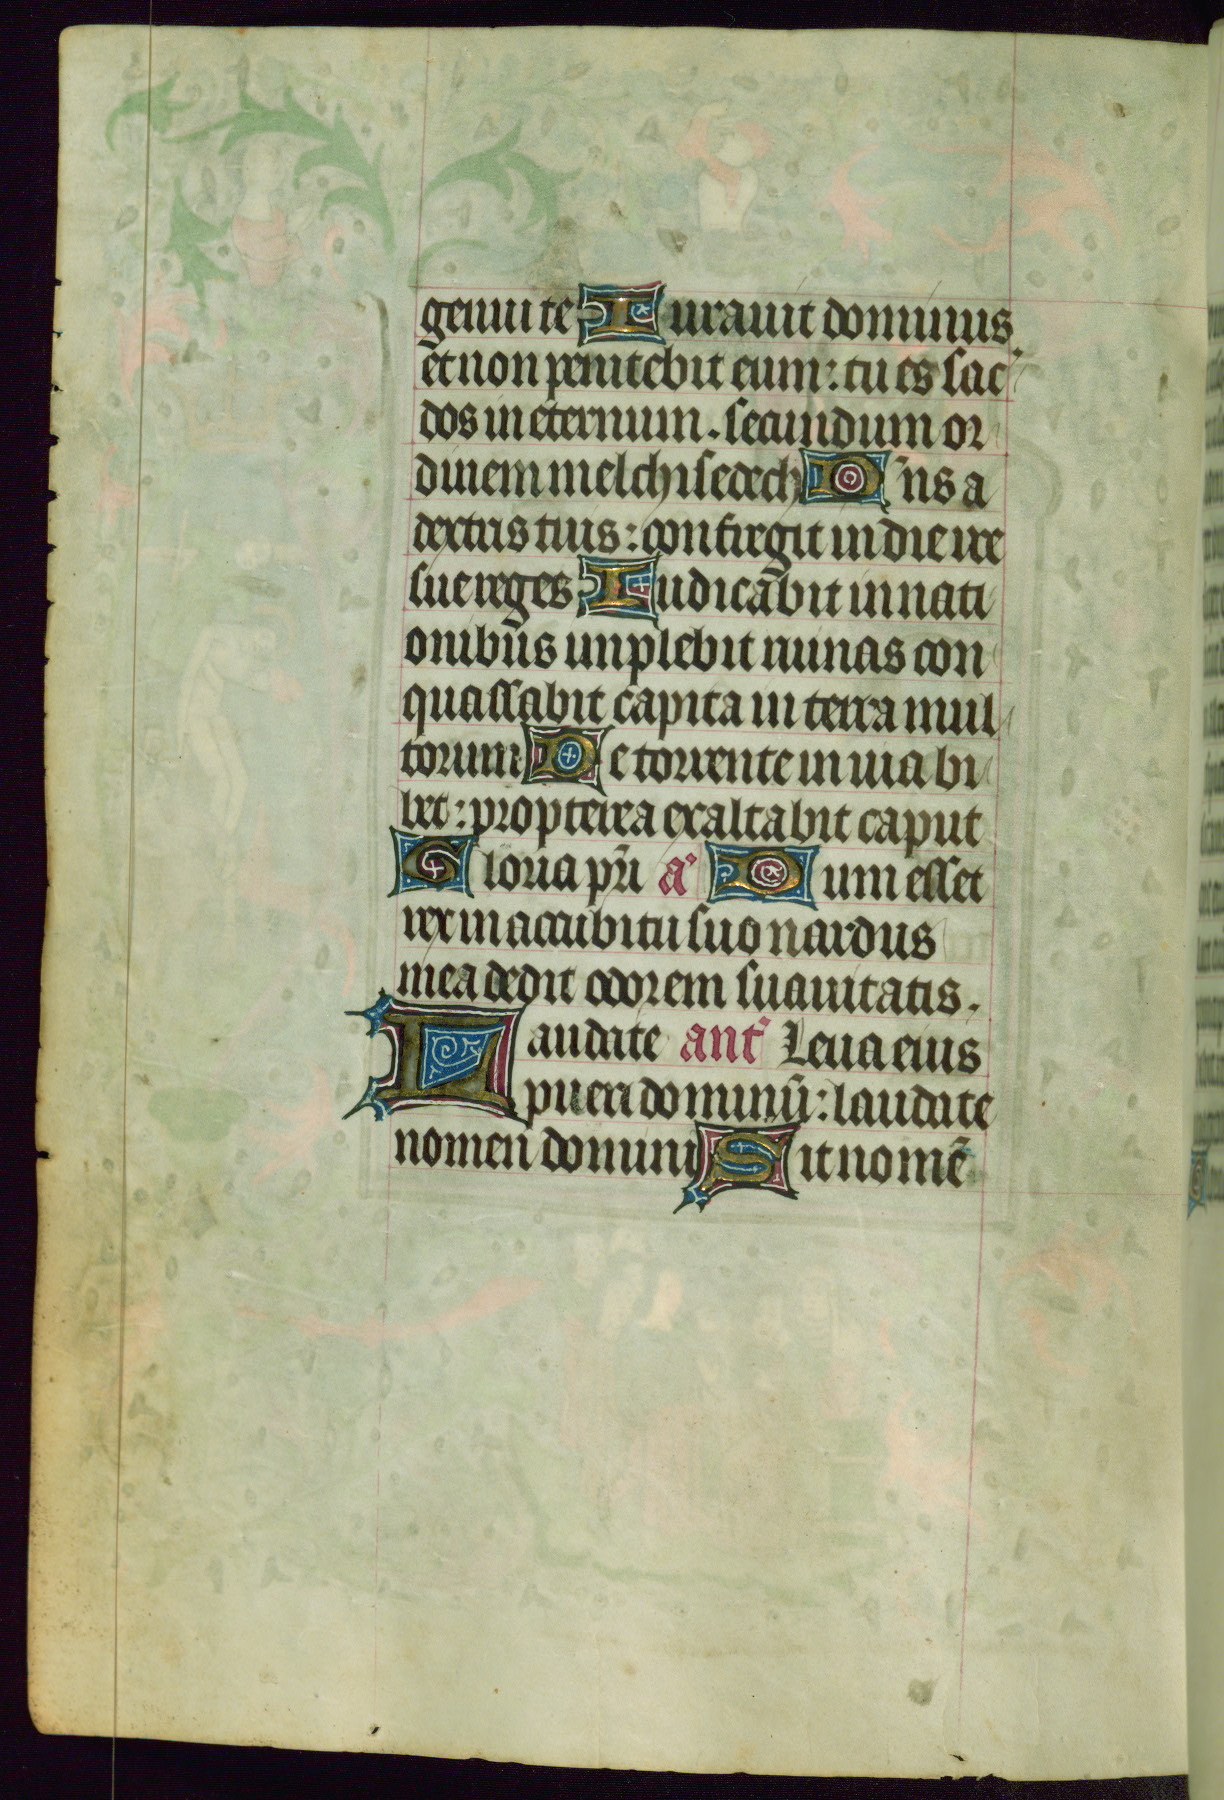 genui te Iurauit dominus
et non penitebit eum: tu es sac
dos in eternum. secundum or
dinem melchisedech Dn̄s a
dextris tuis: confregit in die ire
sue reges Iudicabit in nati
onibus implebit ruinas con
quassabit capita in terra mul
torum De torrente in uia bi
bet: propterea exaltabit caput
Gloria pr̄i a᷒ Dum esset
rex in accubitu suo nardus
mea dedit odorem suauitatis.
Laudate ant᷒ Leua eius
pueri dominū: laudate
nomen domini Sit nomē